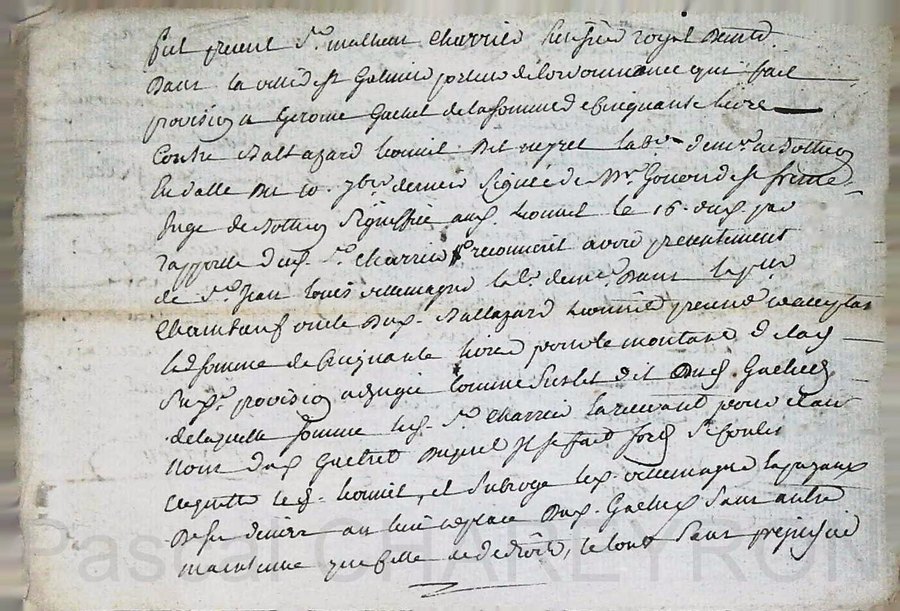 fut present Sr. mathieu Charrier huissier royal
Dans la ville de st Galmier porteur de lordonnance qui fait
provision a Gerome Gachet de la somme de Cinquante livres
Contre Baltazard dit negret lab.r dem.t a Botheon
En datte du 10. 7bre. dernier Signée de Mr. de st
Juge de Botheon Signiffiée aud. le 16. dud. par
rapporté dud. Sr. Charrier reconnoit avoir presentement
de Sr. Jean Louis allemagne lab.r dem.t Dans
Chambœuf oncle Dud. Baltazard
la somme de Cinquante livres pour le montant de lad.
Sus.d. provision adjugée comme Sus est dit aud. Gachet
de laquelle somme led. Sr. Charrier la recevant pour et au
nom dud. Gachet Duquel il se fait fort
acquitte led. et subroge led. allemagne
De ses deniers au lieu et place Dud. Gachet Sans autre
maintenue que celle de de droit, le tout Sans prejudice
Pascal CHAREYRON